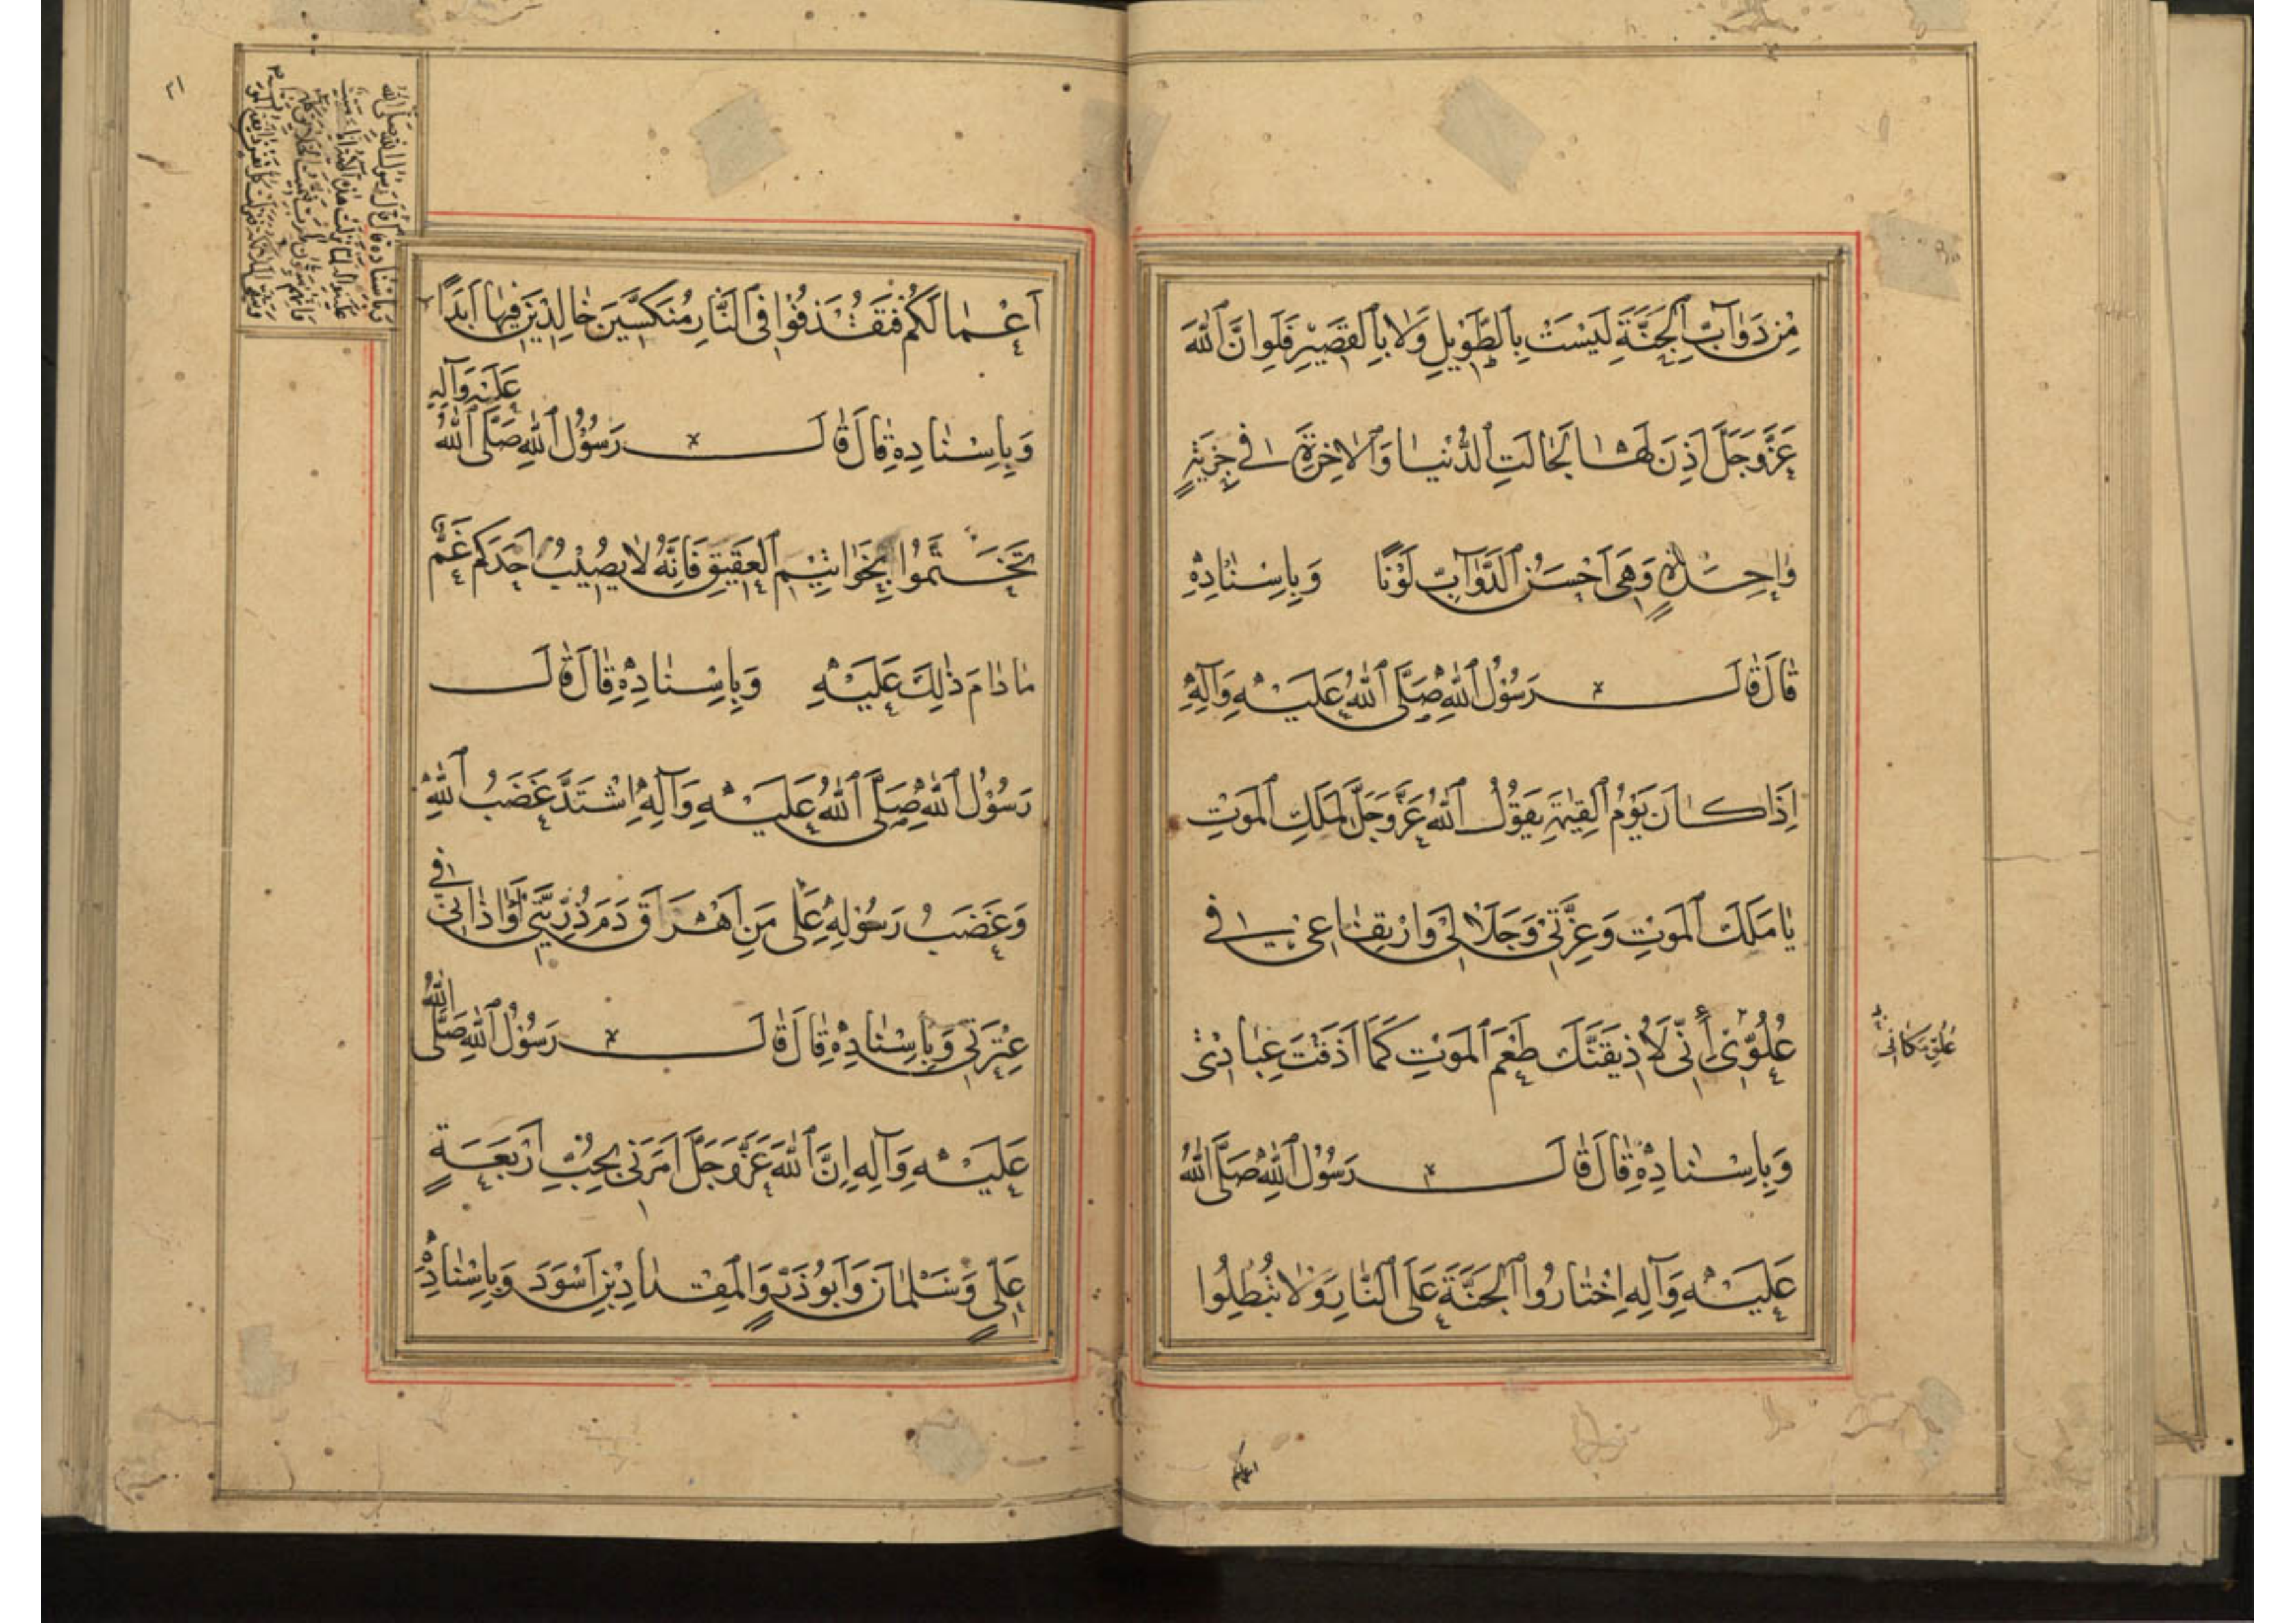 مِنْ دَوَآبِّ ٱلْجَنَّةِ لَيْسَتْ بِالطَّوِيْلِ وَلَا بِالْقَصِيْرِ فَلَوْ اَنَّ ٱللّٰهَ
عَزَّوَجَلَّ اَذِنَ لَهَا لَجَالَتِ ٱلدُّنْيَا وَٱلْاٰخِرَةِ فِي جَرْيَةٍ
وَاحِدَةٍ وَهِيَ اَحْسَنُ ٱلدَّوَآبِّ لَوْنًا وَبِاِسْنَادِهٖ
قَالَ قَالَ رَسُوْلُ ٱللّٰهِ صَلَّى ٱللّٰهُ عَلَيْهِ وَآلِهٖ
اِذَا كَانَ يَوْمُ ٱلْقِيٰمَةِ يَقُوْلُ ٱللّٰهُ عَزَّوَجَلَّ لِمَلَكِ ٱلْمَوْتِ
يَا مَلَكَ ٱلْمَوْتِ وَعِزَّتِيْ وَجَلَالِيْ وَارْتِفَاعِيْ فِي
عُلُوِّيْ أَنِّي لَاُذِيْقَنَّكَ طَعْمَ ٱلْمَوْتِ كَمَا اَذَقْتَ عِبَادِيْ
عُلُوِّ مَكَانِي
وَبِاِسْنَادِهٖ قَالَ قَالَ رَسُوْلُ ٱللّٰهِ صَلَّى ٱللّٰهُ
عَلَيْهِ وَآلِهٖ اِخْتَارُوا ٱلْجَنَّةَ عَلَى ٱلنَّارِ وَلَا تُبْطِلُوا
اعمالكم
اَعْمَالَكُمْ فَتُقْذَفُوْا فِي ٱلنَّارِ مُنَكَّسِيْنَ خَالِدِيْنَ فِيْهَا اَبَدًا
وَبِاِسْنَادِهٖ قَالَ قَالَ رَسُوْلُ ٱللّٰهِ صَلَّى ٱللّٰهُ عَلَيْهِ وَآلِهٖ
تَخَتَّمُوْا بِخَوَاتِيْمِ ٱلْعَقِيْقِ فَاِنَّهُ لَا يُصِيْبُ اَحَدَكُمْ غَمٌّ
مَا دَامَ ذٰلِكَ عَلَيْهِ وَبِاِسْنَادِهٖ قَالَ قَالَ
رَسُوْلُ ٱللّٰهِ صَلَّى ٱللّٰهُ عَلَيْهِ وَآلِهٖ اِشْتَدَّ غَضَبُ ٱللّٰهِ
وَغَضَبُ رَسُوْلِهٖ عَلٰى مَنْ اَهْرَاقَ دَمَ ذُرِّيَّتِيْ اَوْ اٰذَانِيْ فِي
عِتْرَتِيْ وَبِاِسْنَادِهٖ قَالَ قَالَ رَسُوْلُ ٱللّٰهِ صَلَّى ٱللّٰهُ
عَلَيْهِ وَآلِهٖ اِنَّ ٱللّٰهَ عَزَّوَجَلَّ اَمَرَنِيْ بِحُبِّ اَرْبَعَةٍ
عَلِيٍّ وَسَلْمَانَ وَاَبُوْذَرٍّ وَٱلْمِقْدَادِ بْنِ اَسْوَدَ وَبِاِسْنَادِهٖ
وباسناده قال قال رسول الله صلى الله